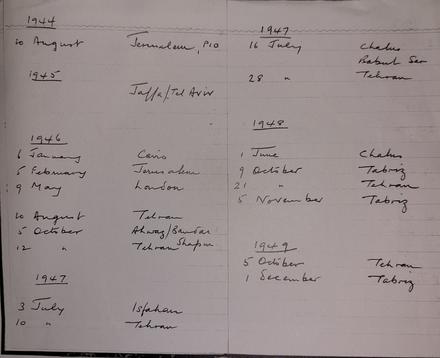 1944
10 August Jerusalem, PIO
1945
Jaffa/Tel Aviv
1946
6 January Cairo
5 February Jerusalem
9 May London
10 August Tehran
5 October Ahwaz/Bandar Shapur
12 " Tehran
1947
3 July Isfahan
10 " Tehran
1947
16 July Chalus
Babul Sar
28 " Tehran
1948
1 June Chalus
9 October Tabriz
21 " Tehran
5 November Tabriz
1949
5 October Tehran
1 December Tabriz